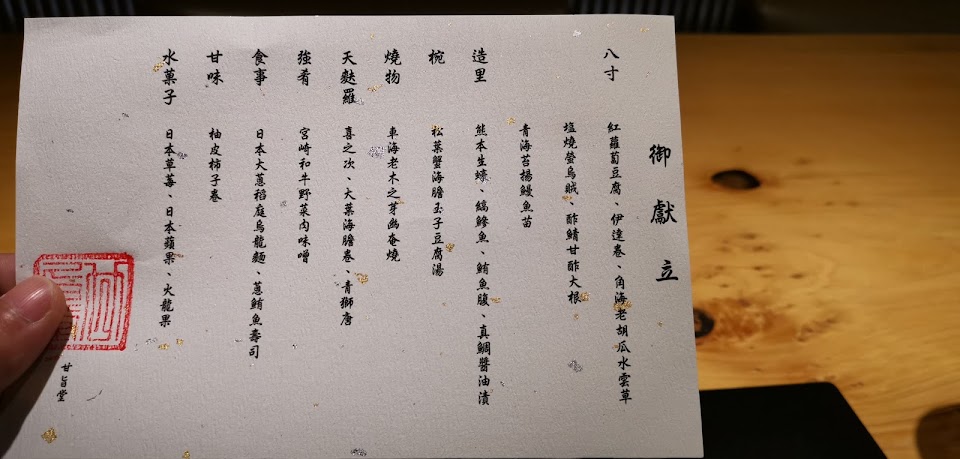 御獻立
八寸
紅蘿蔔豆腐、伊達卷、角海老胡瓜水雲草
塩燒螢烏賊、酢鯖甘酢大根
青海苔揚鰻魚苗
造里
熊本生蠔、縞鰺魚、鮪魚腹、真鯛醬油漬
椀
松葉蟹海膽玉子豆腐湯
燒物
車海老木之芽幽奄燒
天麩羅
喜之次、大葉海膽卷、青獅唐
強肴
宮崎和牛野菜肉味噌
食事
日本大蔥稻庭烏龍麵、蔥鮪魚壽司
甘味
柚皮柿子卷
水菓子
日本草莓、日本蘋果、火龍果
甘旨堂